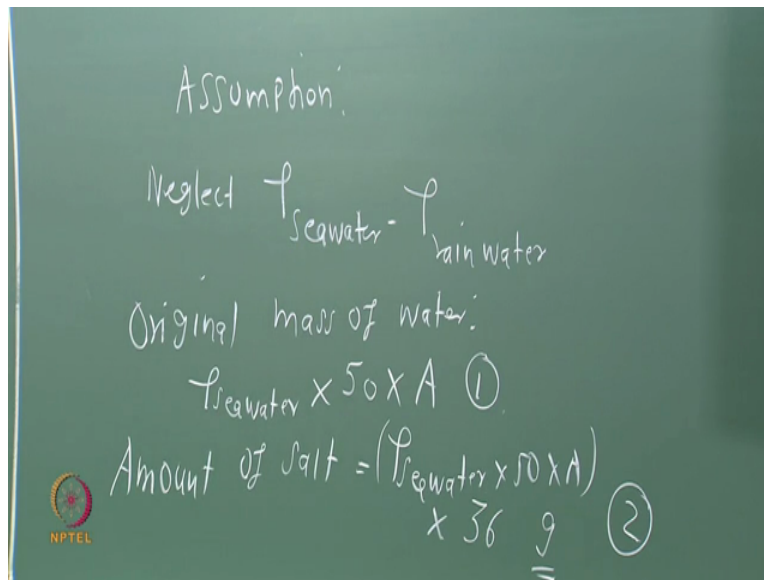 Assumption:
Neglect ρseawater - ρrain water
Original mass of water:
ρseawater × 50 × A ①
Amount of salt = (ρseawater × 50 × A)
× 36 g ②
NPTEL